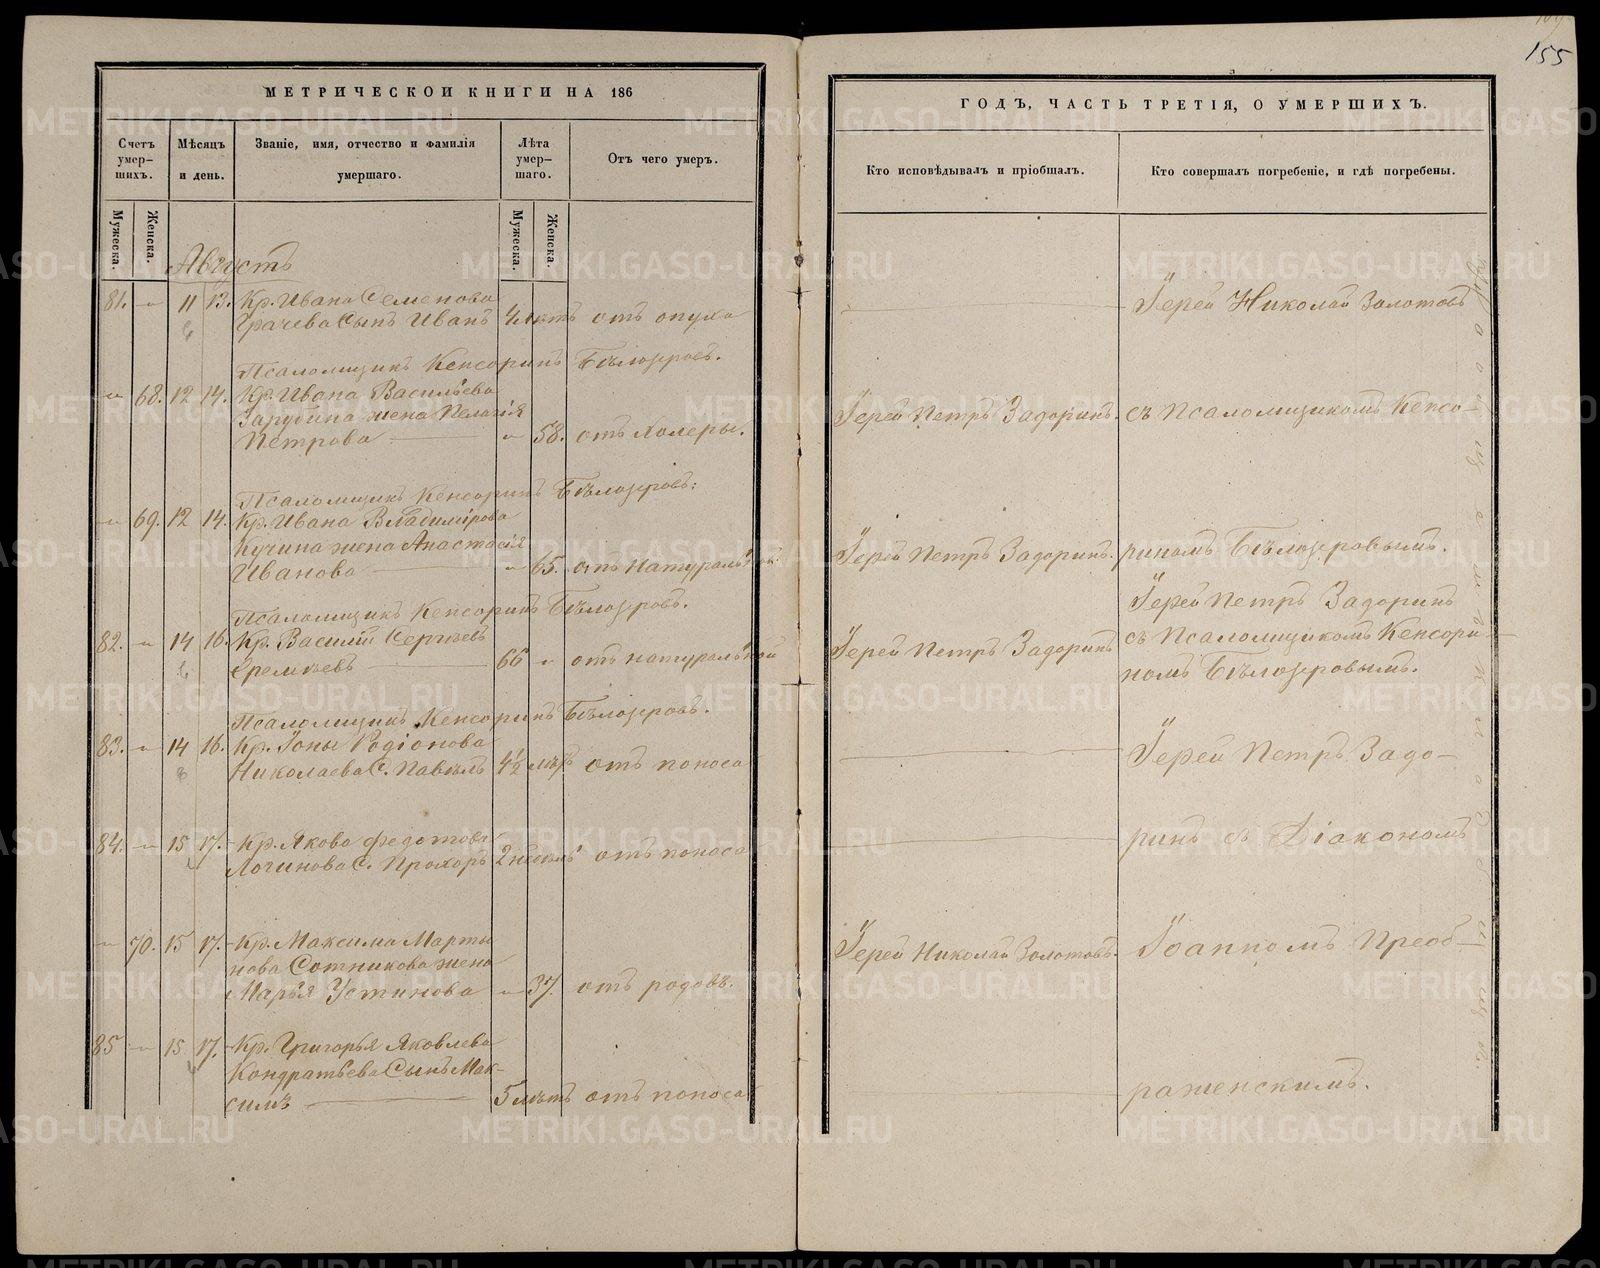 155
МЕТРИЧЕСКОЙ КНИГИ НА 186
Счетъ умер-
шихъ.
Мѣсяцъ
и день.
Званіе, имя, отчество и фамилія
умершаго.
Лѣта
умер-
шаго.
Отъ чего умеръ.
Мужеска.
Женска.
Мужеска.
Женска.
Августъ
81. " 11 13. Кр. Ивана Семенова
Грачева Сынъ Иванъ 4 лѣтъ отъ опуха
Псаломщикъ Кенсоринъ Бѣлозеровъ.
" 68. 12 14. Кр. Ивана Васильева
Зарубина жена Пелагія
Петрова — " 58. отъ холеры.
Псаломщикъ Кенсоринъ Бѣлозеровъ.
" 69. 12 14. Кр. Ивана Владимірова
Кучина жена Анастасія
Иванова — " 65. отъ натуральной
Псаломщикъ Кенсоринъ Бѣлозеровъ.
82. " 14 16. Кр. Василій Сергѣевъ
Еремѣевъ — 66 " отъ натуральной
Псаломщикъ Кенсоринъ Бѣлозеровъ.
83. " 14 16. Кр. Іоны Родіонова
Николаева С. Павелъ 4½ мѣс. отъ поноса
84. " 15 17. Кр. Якова Федотова
Логинова С. Прохоръ 2 недѣль отъ поноса
" 70. 15 17. Кр. Максима Марты
нова Сотникова жена
Марья Устинова " 37. отъ родовъ.
85 " 15 17. Кр. Григорья Яковлева
Кондратьева Сынъ Мак-
симъ — 5 лѣтъ отъ поноса
ГОДЪ, ЧАСТЬ ТРЕТІЯ, О УМЕРШИХЪ.
Кто исповѣдывалъ и пріобщалъ.
Кто совершалъ погребеніе, и гдѣ погребены.
Іерей Николай Золотовъ
Іерей Петръ Задоринъ. съ Псаломщикомъ Кенсо-
Іерей Петръ Задоринъ. риномъ Бѣлозеровымъ.
Іерей Петръ Задоринъ
Іерей Петръ Задоринъ съ Псаломщикомъ Кенсори-
номъ Бѣлозеровымъ.
Іерей Петръ Задо-
ринъ съ Діакономъ
Іерей Николай Золотовъ. Іоанномъ Преоб-
раженскимъ.
METRIKI.GASO-URAL.RU